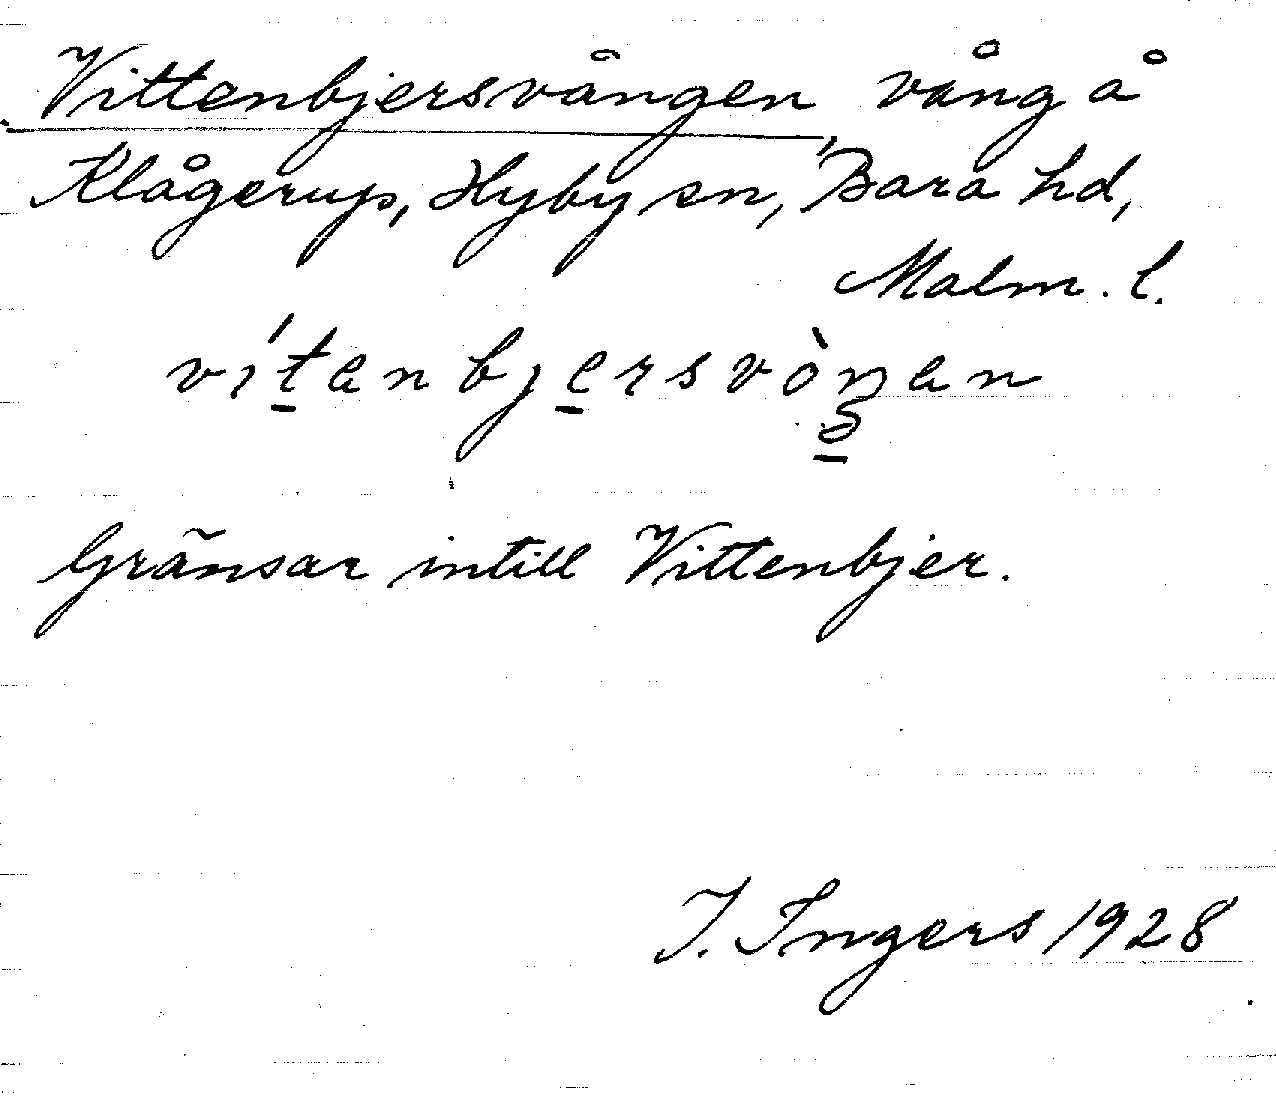 Vittenbjersvången, vång å
Klågerup, Hyby sn, Bara hd,
Malm. l.
vítenbjersvòŋen
Gränsar intill Vittenbjer.
I. Ingers 1928